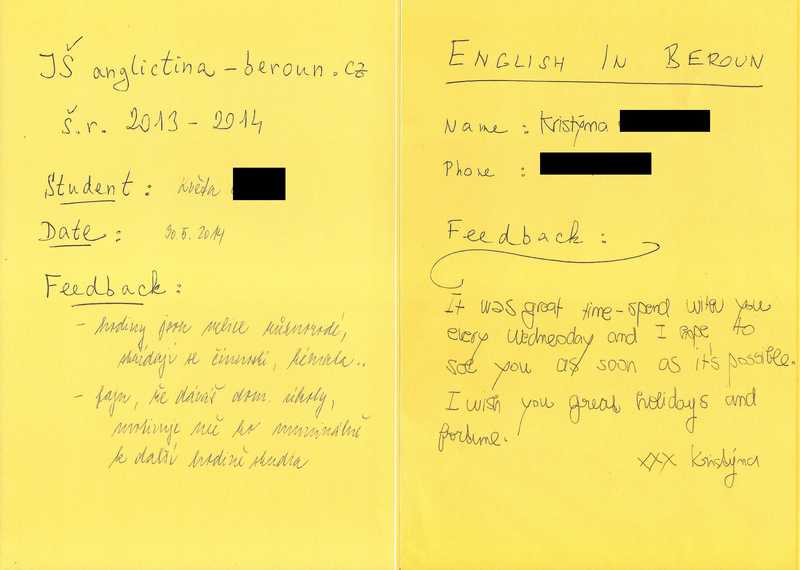 JŠ anglictina-beroun.cz
š.r. 2013 - 2014
Student: Květa
Date: 30.5.2014
Feedback:
- hodiny jsou velice různorodé,
střídají se činnosti, témata..
- fajn, že dáváš dom. úkoly,
motivuje mě to minimálně
k další hodině studia
ENGLISH IN BEROUN
Name: Kristýna
Phone:
Feedback:
It was great time-spend with you
every Wednesday and I hope to
see you as soon as it's possible.
I wish you great holidays and
fortune.
xXx Kristýna